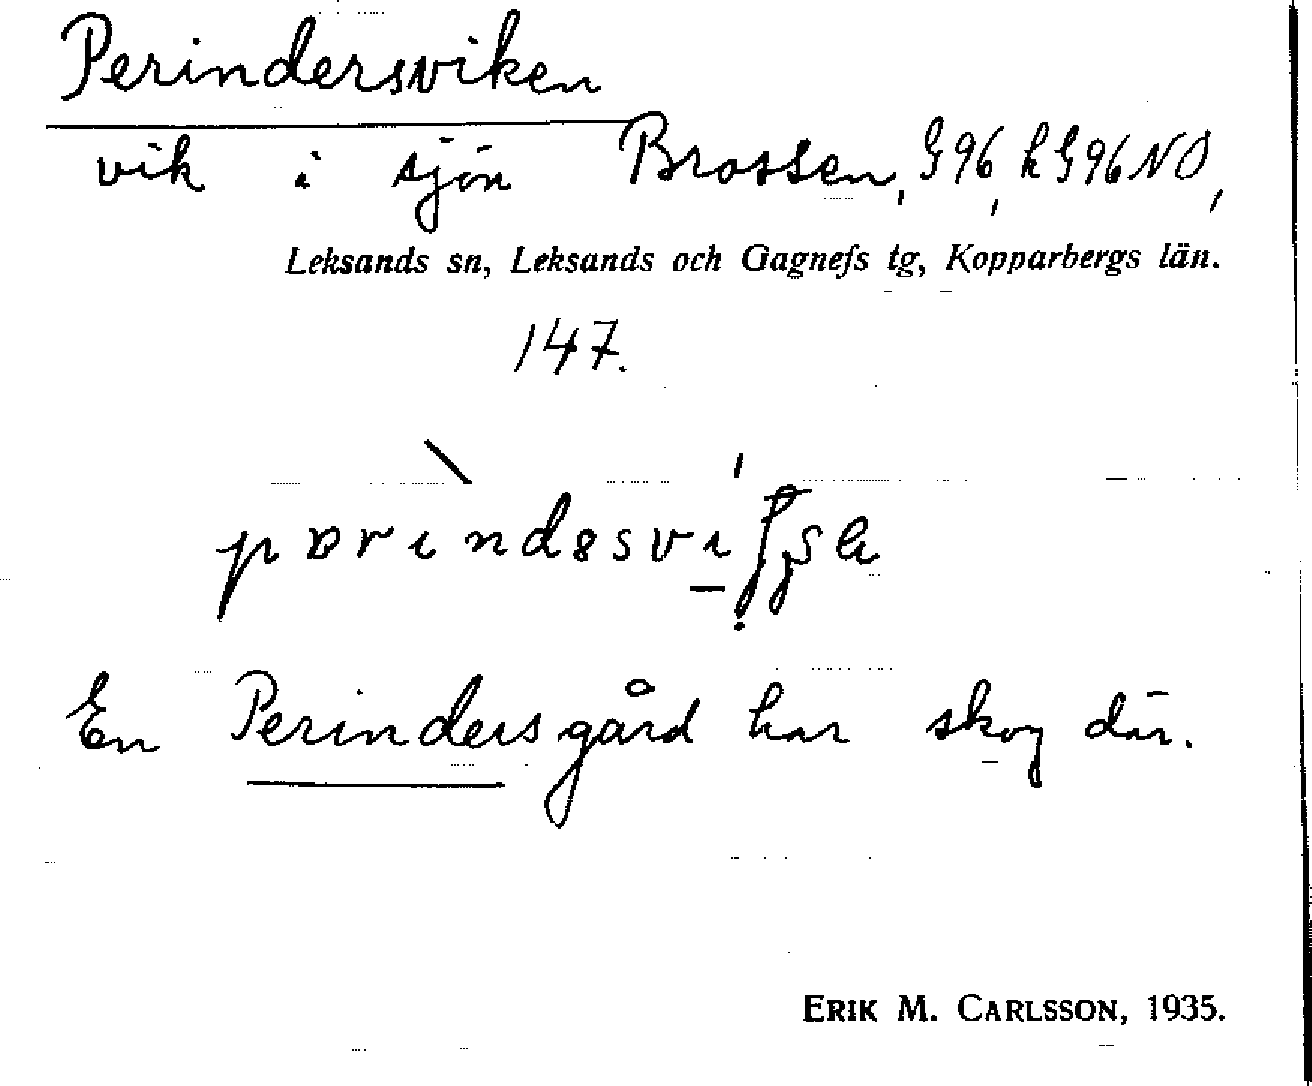 Perindersviken
vik i sjön Brossen, G96, h G96NO,
Leksands sn, Leksands och Gagnefs tg, Kopparbergs län.
147.
En Perindersgård har skog där.
ERIK M. CARLSSON, 1935.